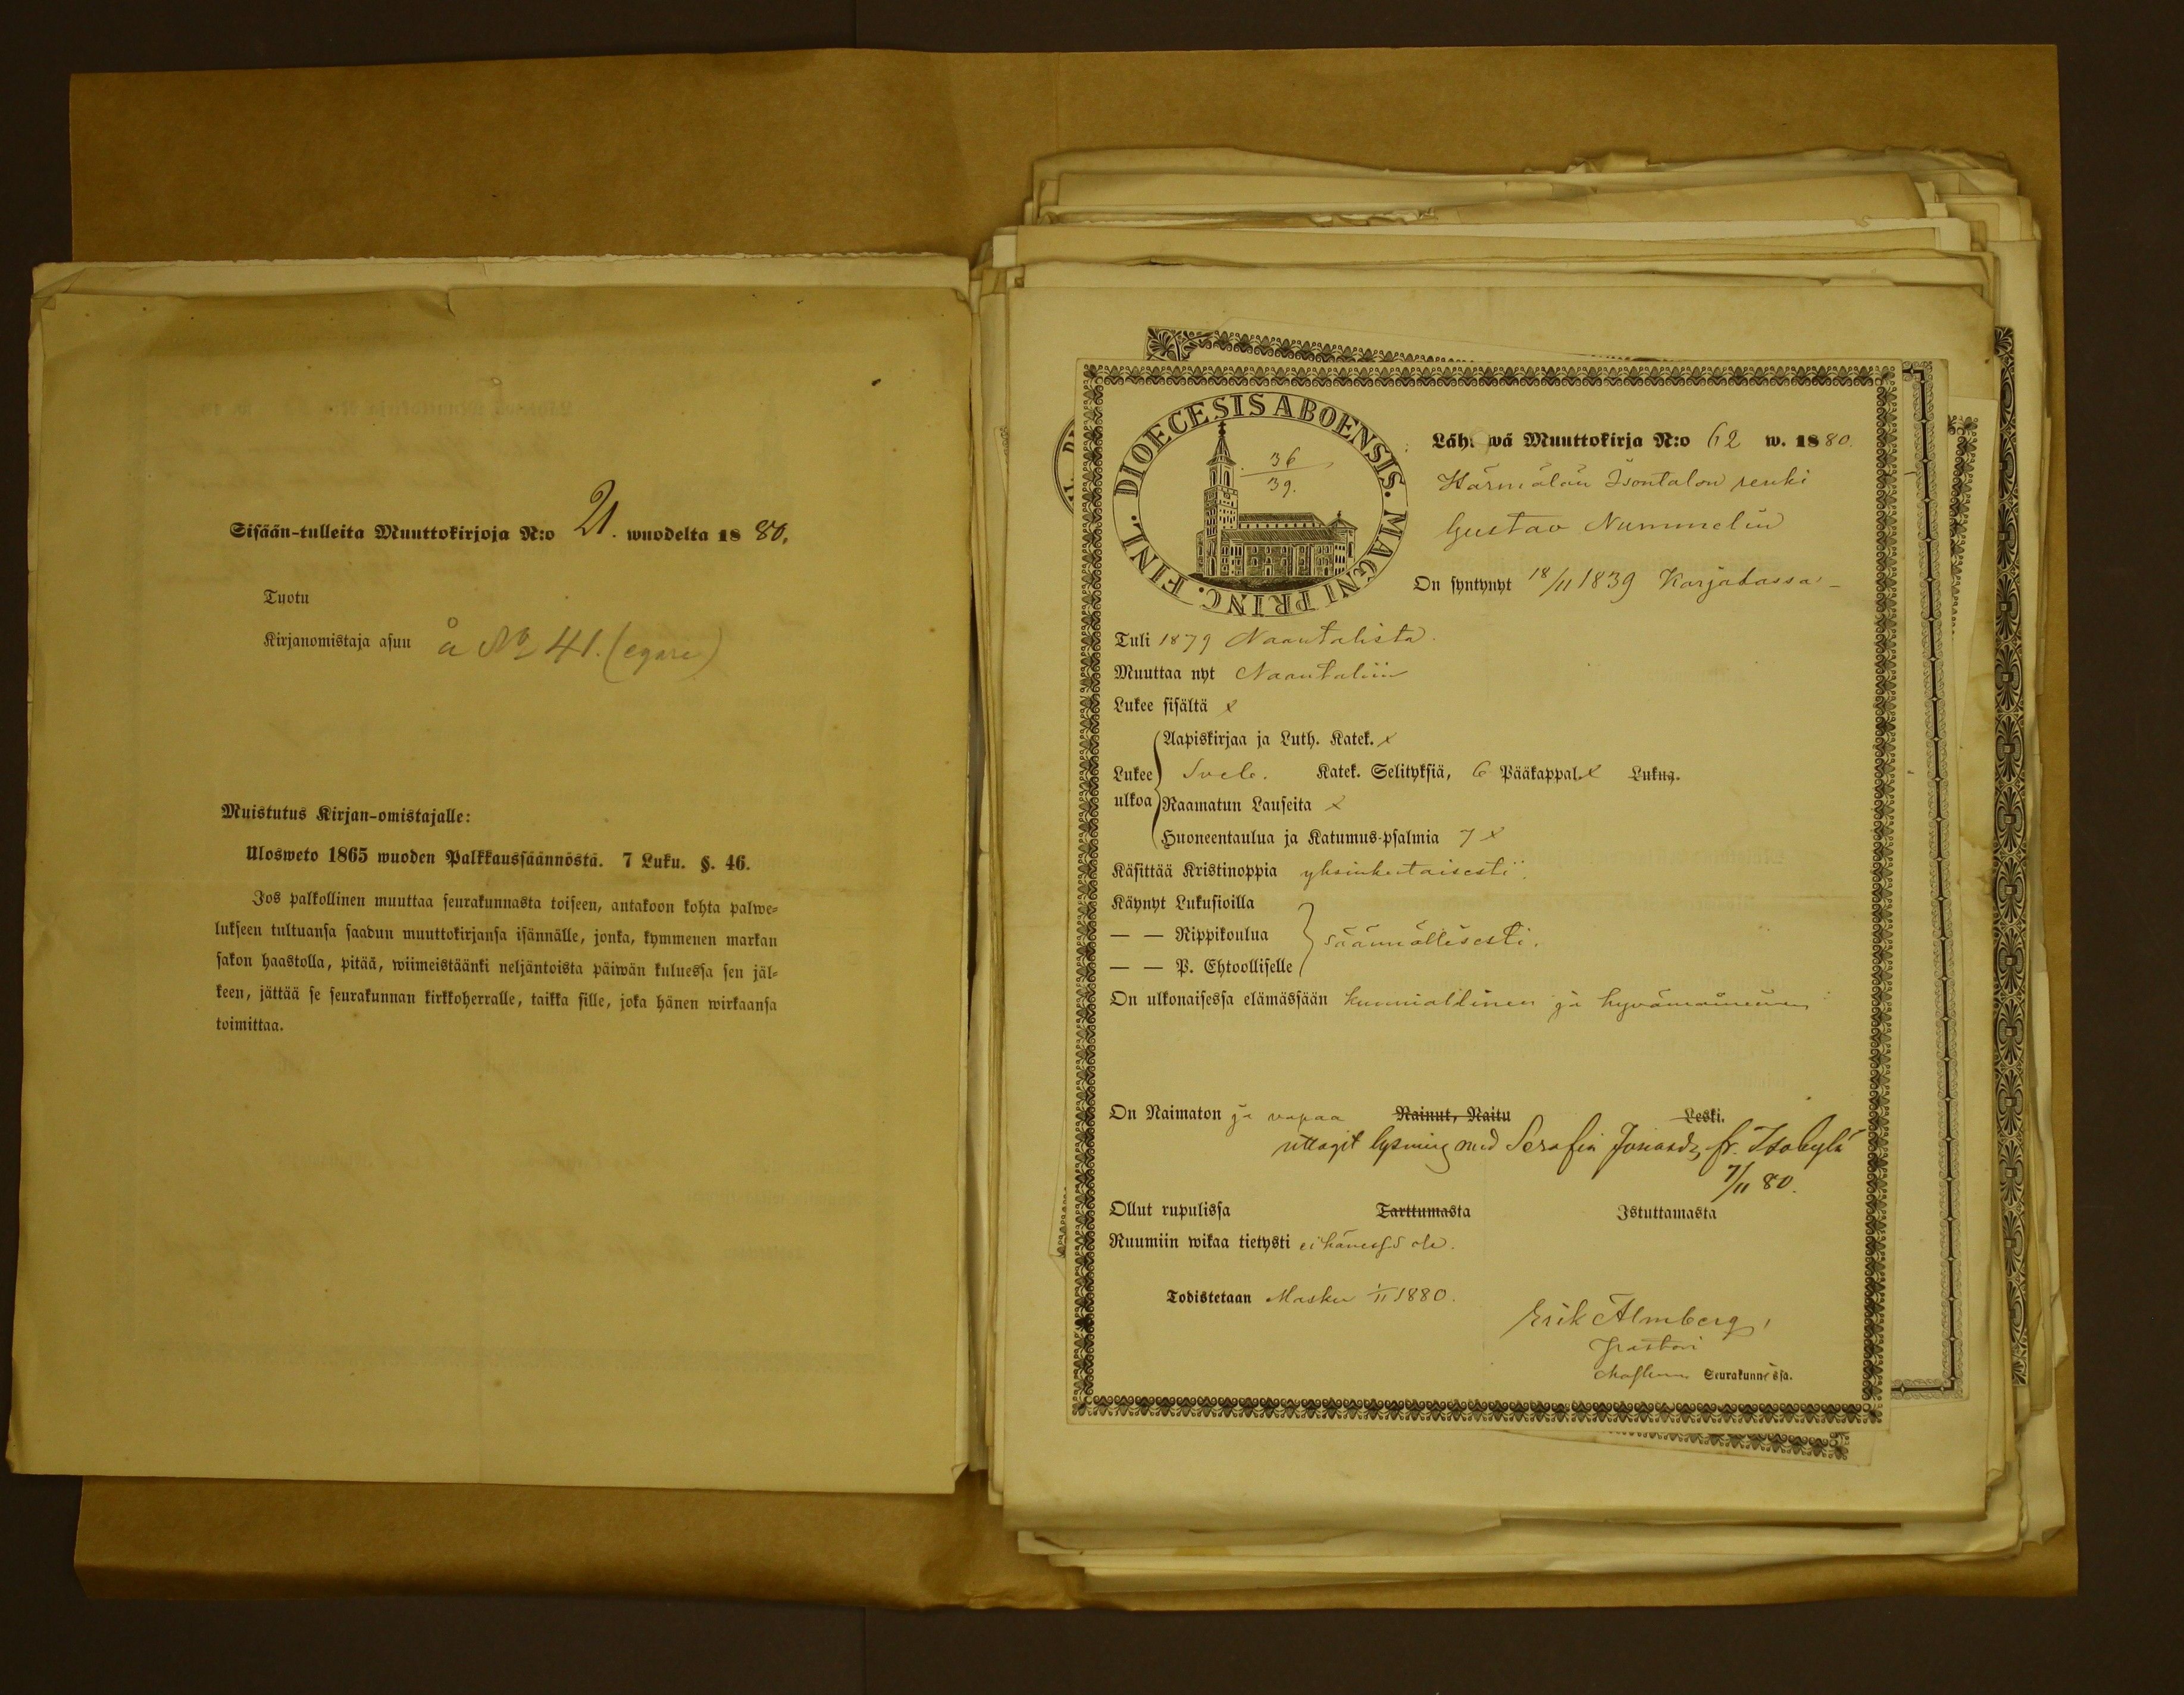 Sisään-tulleita Muuttokirjoja N:o 21. wuodelta 1880.
Tuotu
Kirjanomistaja asuu å No 41. (egare)
Muistutus Kirjan-omistajalle:
Ulosweto 1865 wuoden Palkkaussäännöstä. 7 Luku. §. 46.
Jos palkollinen muuttaa seurakunnasta toiseen, antakoon kohta palwe-
lukseen tultuansa saadun muuttokirjansa isännälle, jonka, kymmenen markan
sakon haastolla, pitää, wiimeistäänki neljäntoista päiwän kuluessa sen jäl-
keen, jättää se seurakunnan kirkkoherralle, taikka sille, joka hänen wirkaansa
toimittaa.
DIOECESIS ABOENSIS. MAGNI PRINC. FINL.
36
39.
Läh wä Muuttokirja N:o 62 w. 1880.
Härmälän Isontalon renki
Gustav Nummelin
On syntynyt 18/11 1839 Karjalassa
Tuli 1879 Naantalista.
Muuttaa nyt Naantaliin
Lukee sisältä x
Aapiskirjaa ja Luth. Katek. x
Lukee Sveb. Katek. Selityksiä, 6 Pääkappal. x Lukua.
ulkoa Raamatun Lauseita x
Huoneentaulua ja Katumus-psalmia 7 x
Käsittää Kristinoppia yksinkertaisesti.
Käynyt Lukusioilla
— — Rippikoulua säännöllisesti.
— — P. Ehtoolliselle
On ulkonaisessa elämässään kunniallinen ja hyvämaineinen
On Naimaton ja vapaa Nainut, Naitu Leski.
uttagit lysning med Serafia fr. Isokylä
7/11 80.
Ollut rupulissa Tarttumasta Istuttamasta
Ruumiin wikaa tietysti ei hänessä ole.
Todistetaan Masku 1/11 1880.
Erik Almberg,
Pastori
Maskun Seurakunnassa.